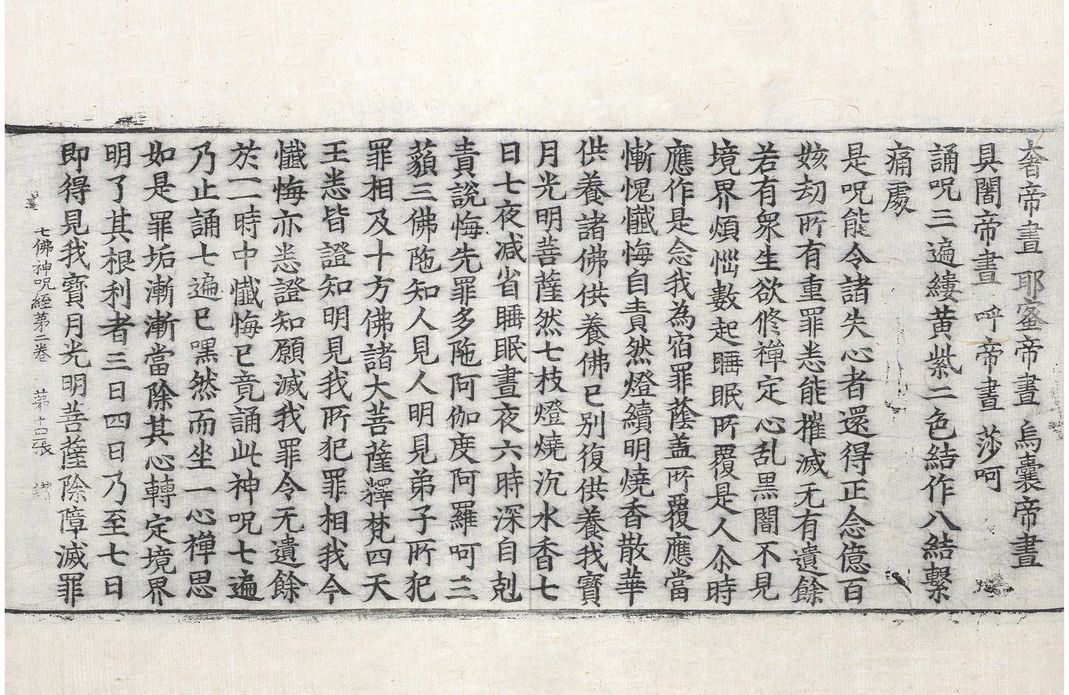 奢帝晝 耶蜜帝晝 烏囊帝晝
具闍帝晝 呼帝晝 莎呵
誦呪三遍縷黃紫二色結作八結繫
痛處
是呪能令諸失心者還得正念億百
姟劫所有重罪悉能摧滅无有遺餘
若有衆生欲修禪定心乱黒闇不見
境界煩惱數起睡眠所覆是人尒時
應作是念我為宿罪蔭盖所覆應當
慚愧懺悔自責然燈續明燒香散華
供養諸佛供養佛已別復供養我寶
月光明菩薩然七枝燈燒沉水香七
日七夜減省睡眠晝夜六時深自剋
責說悔先罪多陁阿伽度阿羅呵三
藐三佛陁知人見人明見弟子所犯
罪相及十方佛諸大菩薩釋梵四天
王悉皆證知明見我所犯罪相我今
懺悔亦悉證知願滅我罪令无遺餘
於一時中懺悔已竟誦此神呪七遍
乃止誦七遍已嘿然而坐一心禪思
如是罪垢漸漸當除其心轉定境界
明了其根利者三日四日乃至七日
七佛神呪經第二卷 第十口張
即得見我寶月光明菩薩除障滅罪